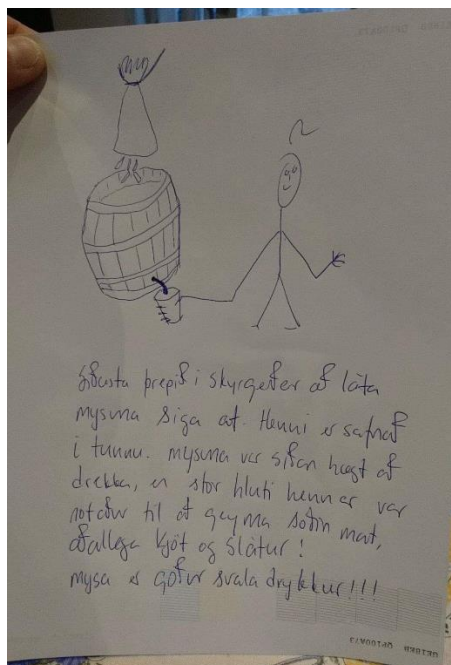 síðasta þrepið í skyrgerð er að láta
mysuna síga af. Henni er safnað
í tunnu. mysuna var síðan hægt að
drekka, en stór hluti hennar var
notaður til að geyma soðin mat,
aðallega kjöt og slátur!
mysa er góður svala drykkur!!!